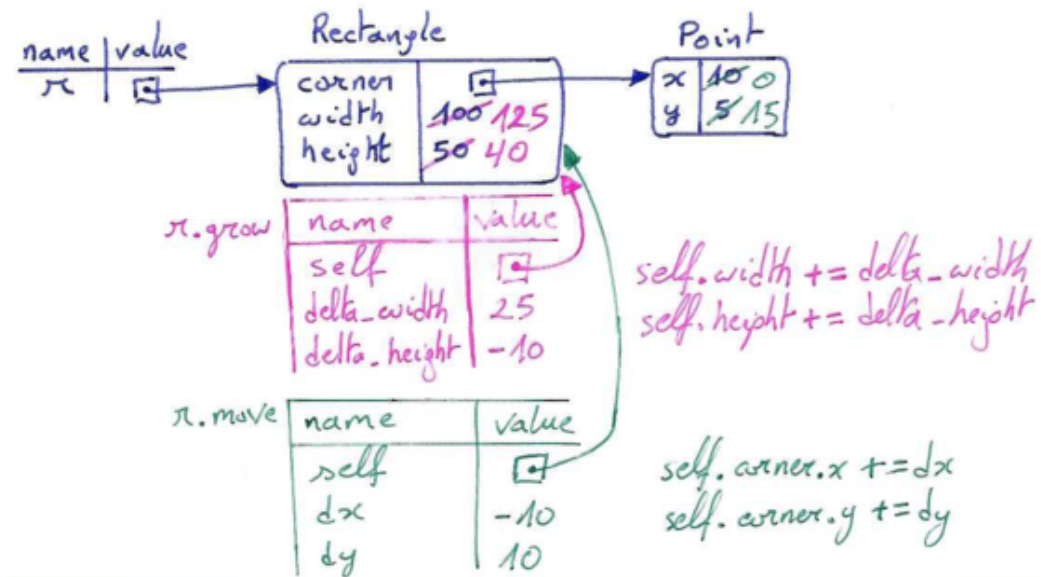 Rectangle
Point
name value
r
corner
width 100 125
height 50 40
x 10 0
y 5 15
r.grow name value
self
delta_width 25
delta_height -10
self.width += delta_width
self.height += delta_height
r.move name value
self
dx -10
dy 10
self.corner.x += dx
self.corner.y += dy